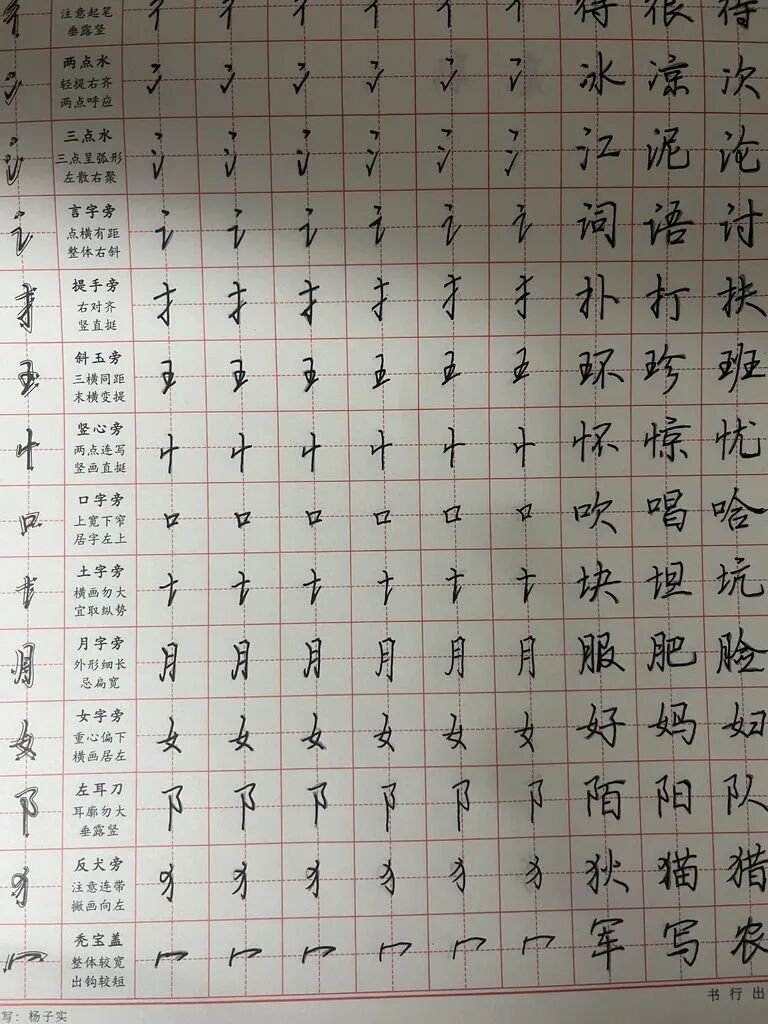 彳 注意起笔 垂露竖 彳 彳 彳 彳 彳 彳 得 很 待
冫 两点水 轻提右齐 两点呼应 冫 冫 冫 冫 冫 冫 冰 凉 次
氵 三点水 三点呈弧形 左散右聚 氵 氵 氵 氵 氵 氵 江 泥 沦
讠 言字旁 点横有距 整体右斜 讠 讠 讠 讠 讠 讠 词 语 讨
扌 提手旁 右对齐 竖直挺 扌 扌 扌 扌 扌 扌 扑 打 扶
王 斜玉旁 三横同距 末横变提 王 王 王 王 王 王 环 珍 班
忄 竖心旁 两点连写 竖画直挺 忄 忄 忄 忄 忄 忄 怀 惊 忧
口 口字旁 上宽下窄 居字左上 口 口 口 口 口 口 吹 唱 啥
土 土字旁 横画勿大 宜取纵势 土 土 土 土 土 土 块 坦 坑
月 月字旁 外形细长 忌扁宽 月 月 月 月 月 月 服 肥 脸
女 女字旁 重心偏下 横画居左 女 女 女 女 女 女 好 妈 妇
阝 左耳刀 耳廓勿大 垂露竖 阝 阝 阝 阝 阝 阝 陌 阳 队
犭 反犬旁 注意连带 撇画向左 犭 犭 犭 犭 犭 犭 狄 猫 猎
冖 秃宝盖 整体较宽 出钩较短 冖 冖 冖 冖 冖 冖 军 写 农
书行出
写：杨子实